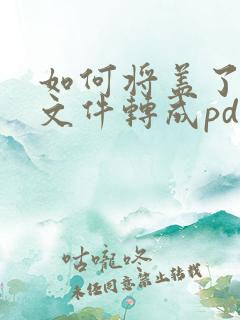 如何将盖了
文件转成pd
咕嚨咚
未经同意禁止转载